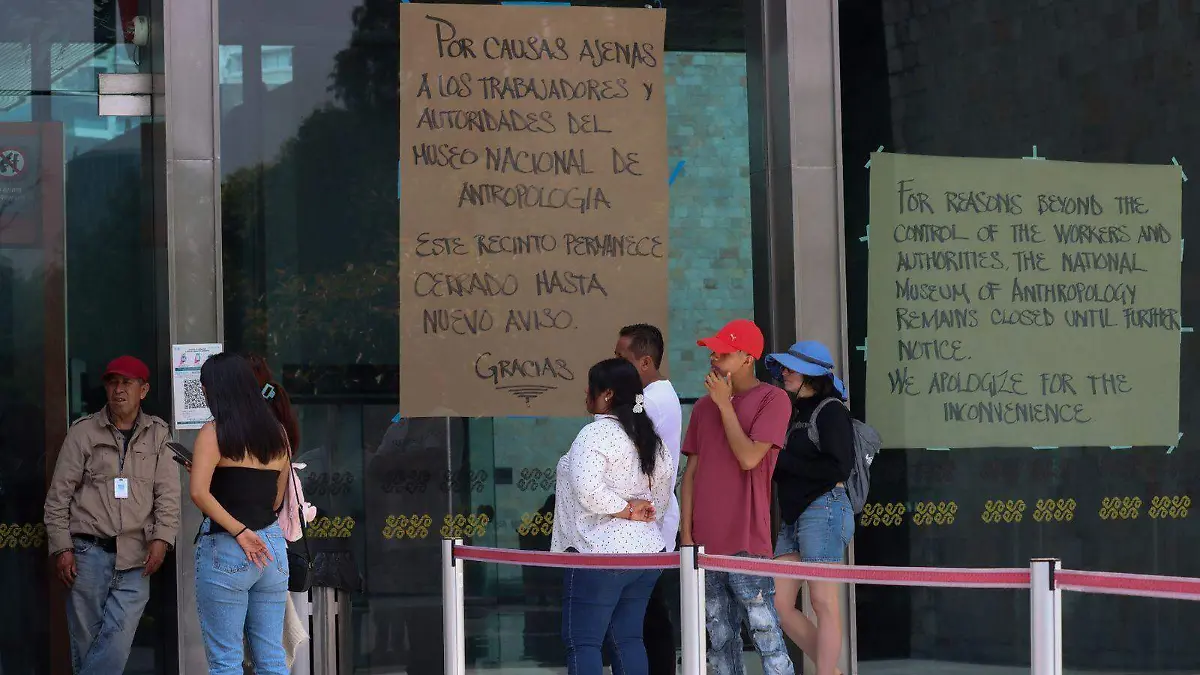 POR CAUSAS AJENAS
A LOS TRABAJADORES Y
AUTORIDADES DEL
MUSEO NACIONAL DE
ANTROPOLOGIA
ESTE RECINTO PERMANECE
CERRADO HASTA
NUEVO AVISO.
GRACIAS
FOR REASONS BEYOND THE
CONTROL OF THE WORKERS AND
AUTHORITIES, THE NATIONAL
MUSEUM OF ANTHROPOLOGY
REMAINS CLOSED UNTIL FURTHER
NOTICE.
WE APOLOGIZE FOR THE
INCONVENIENCE